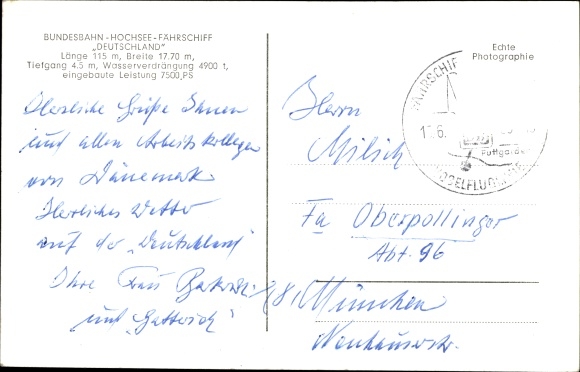 BUNDESBAHN-HOCHSEE-FÄHRSCHIFF
„DEUTSCHLAND"
Länge 115 m, Breite 17.70 m,
Tiefgang 4.5 m, Wasserverdrängung 4900 t,
eingebaute Leistung 7500 PS
Echte
Photographie
Herzliche Grüße Ihnen
und allen Arbeitskollegen
von Dänemark
Herrliches Wetter
auf der „Deutschland"
Ihre Frau
und
Herrn
Milsch
Fa Oberpollinger
Abt. 96
München
Neuhauserstr.
FÄHRSCHIFF
Puttgarden
VOGELFLUGLINIE